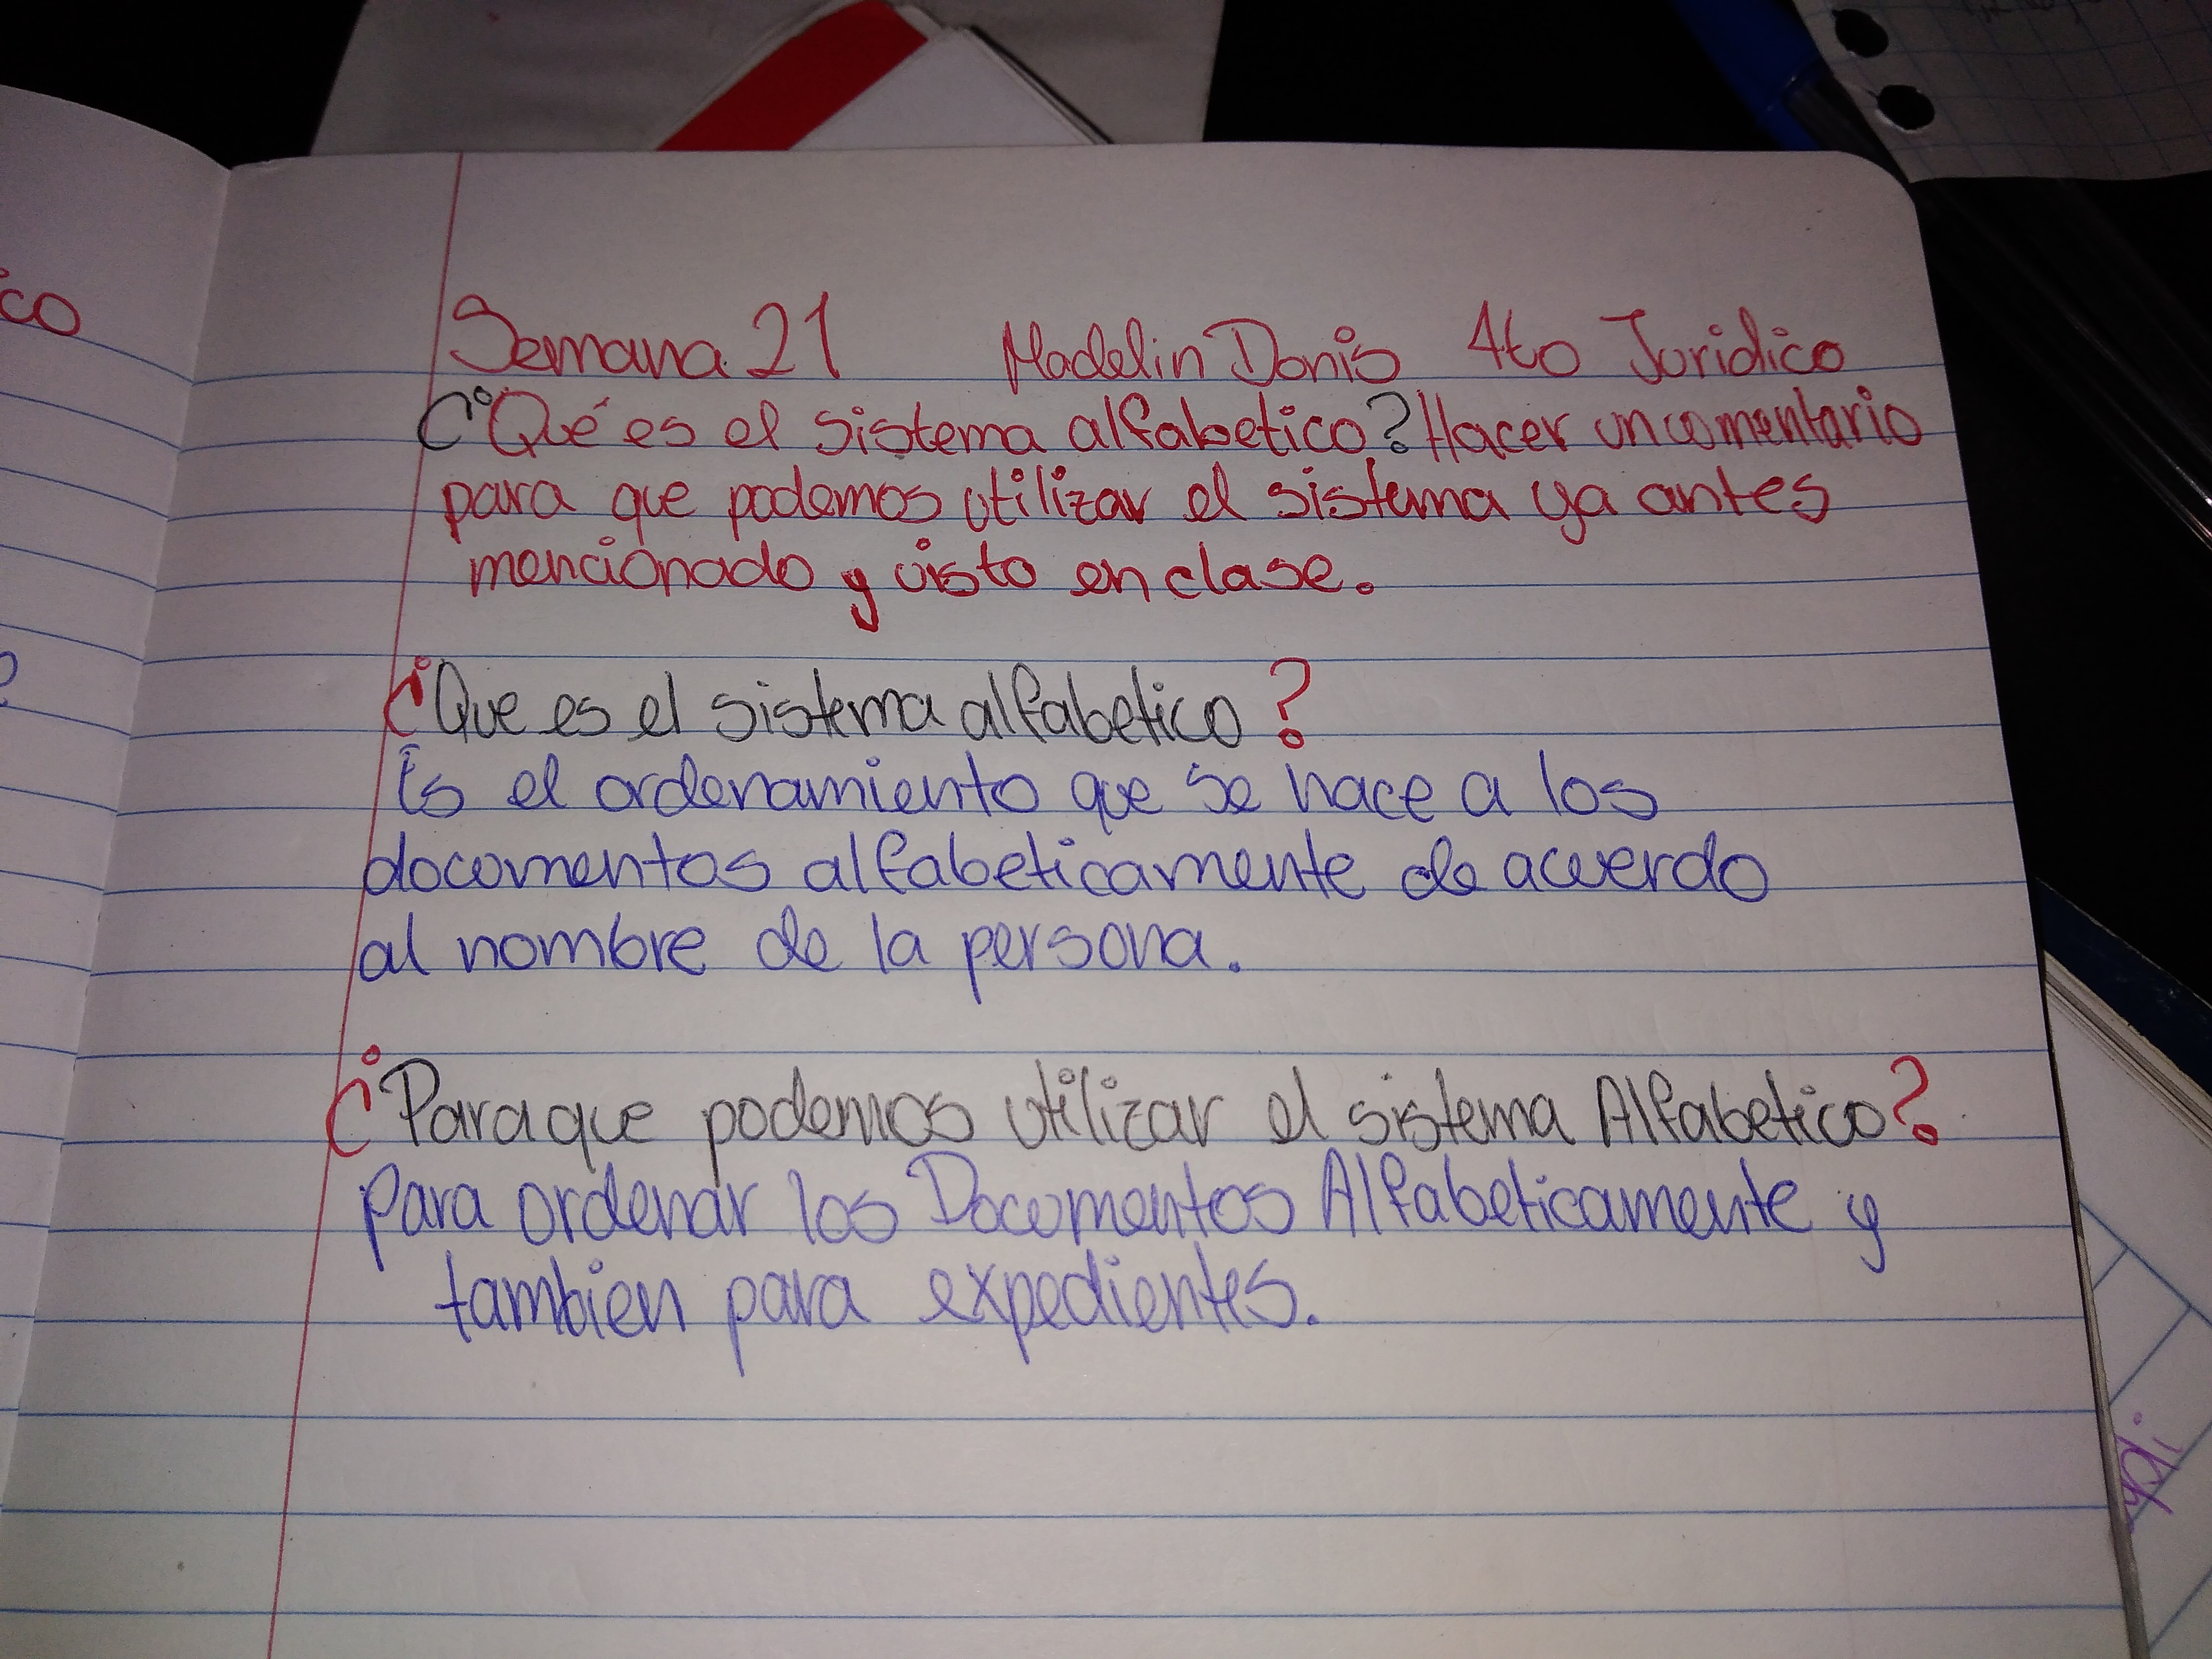 co
Semana 21 Madelin Donis 4to Juridico
¿Qué es el sistema alfabetico? Hacer un comentario
para que podemos utilizar el sistema ya antes
mencionado y visto en clase.
¿Que es el sistema alfabetico?
Es el ordenamiento que se hace a los
documentos alfabeticamente de acuerdo
al nombre de la persona.
¿Para que podemos utilizar el sistema Alfabetico?
Para ordenar los Documentos Alfabeticamente y
tambien para expedientes.